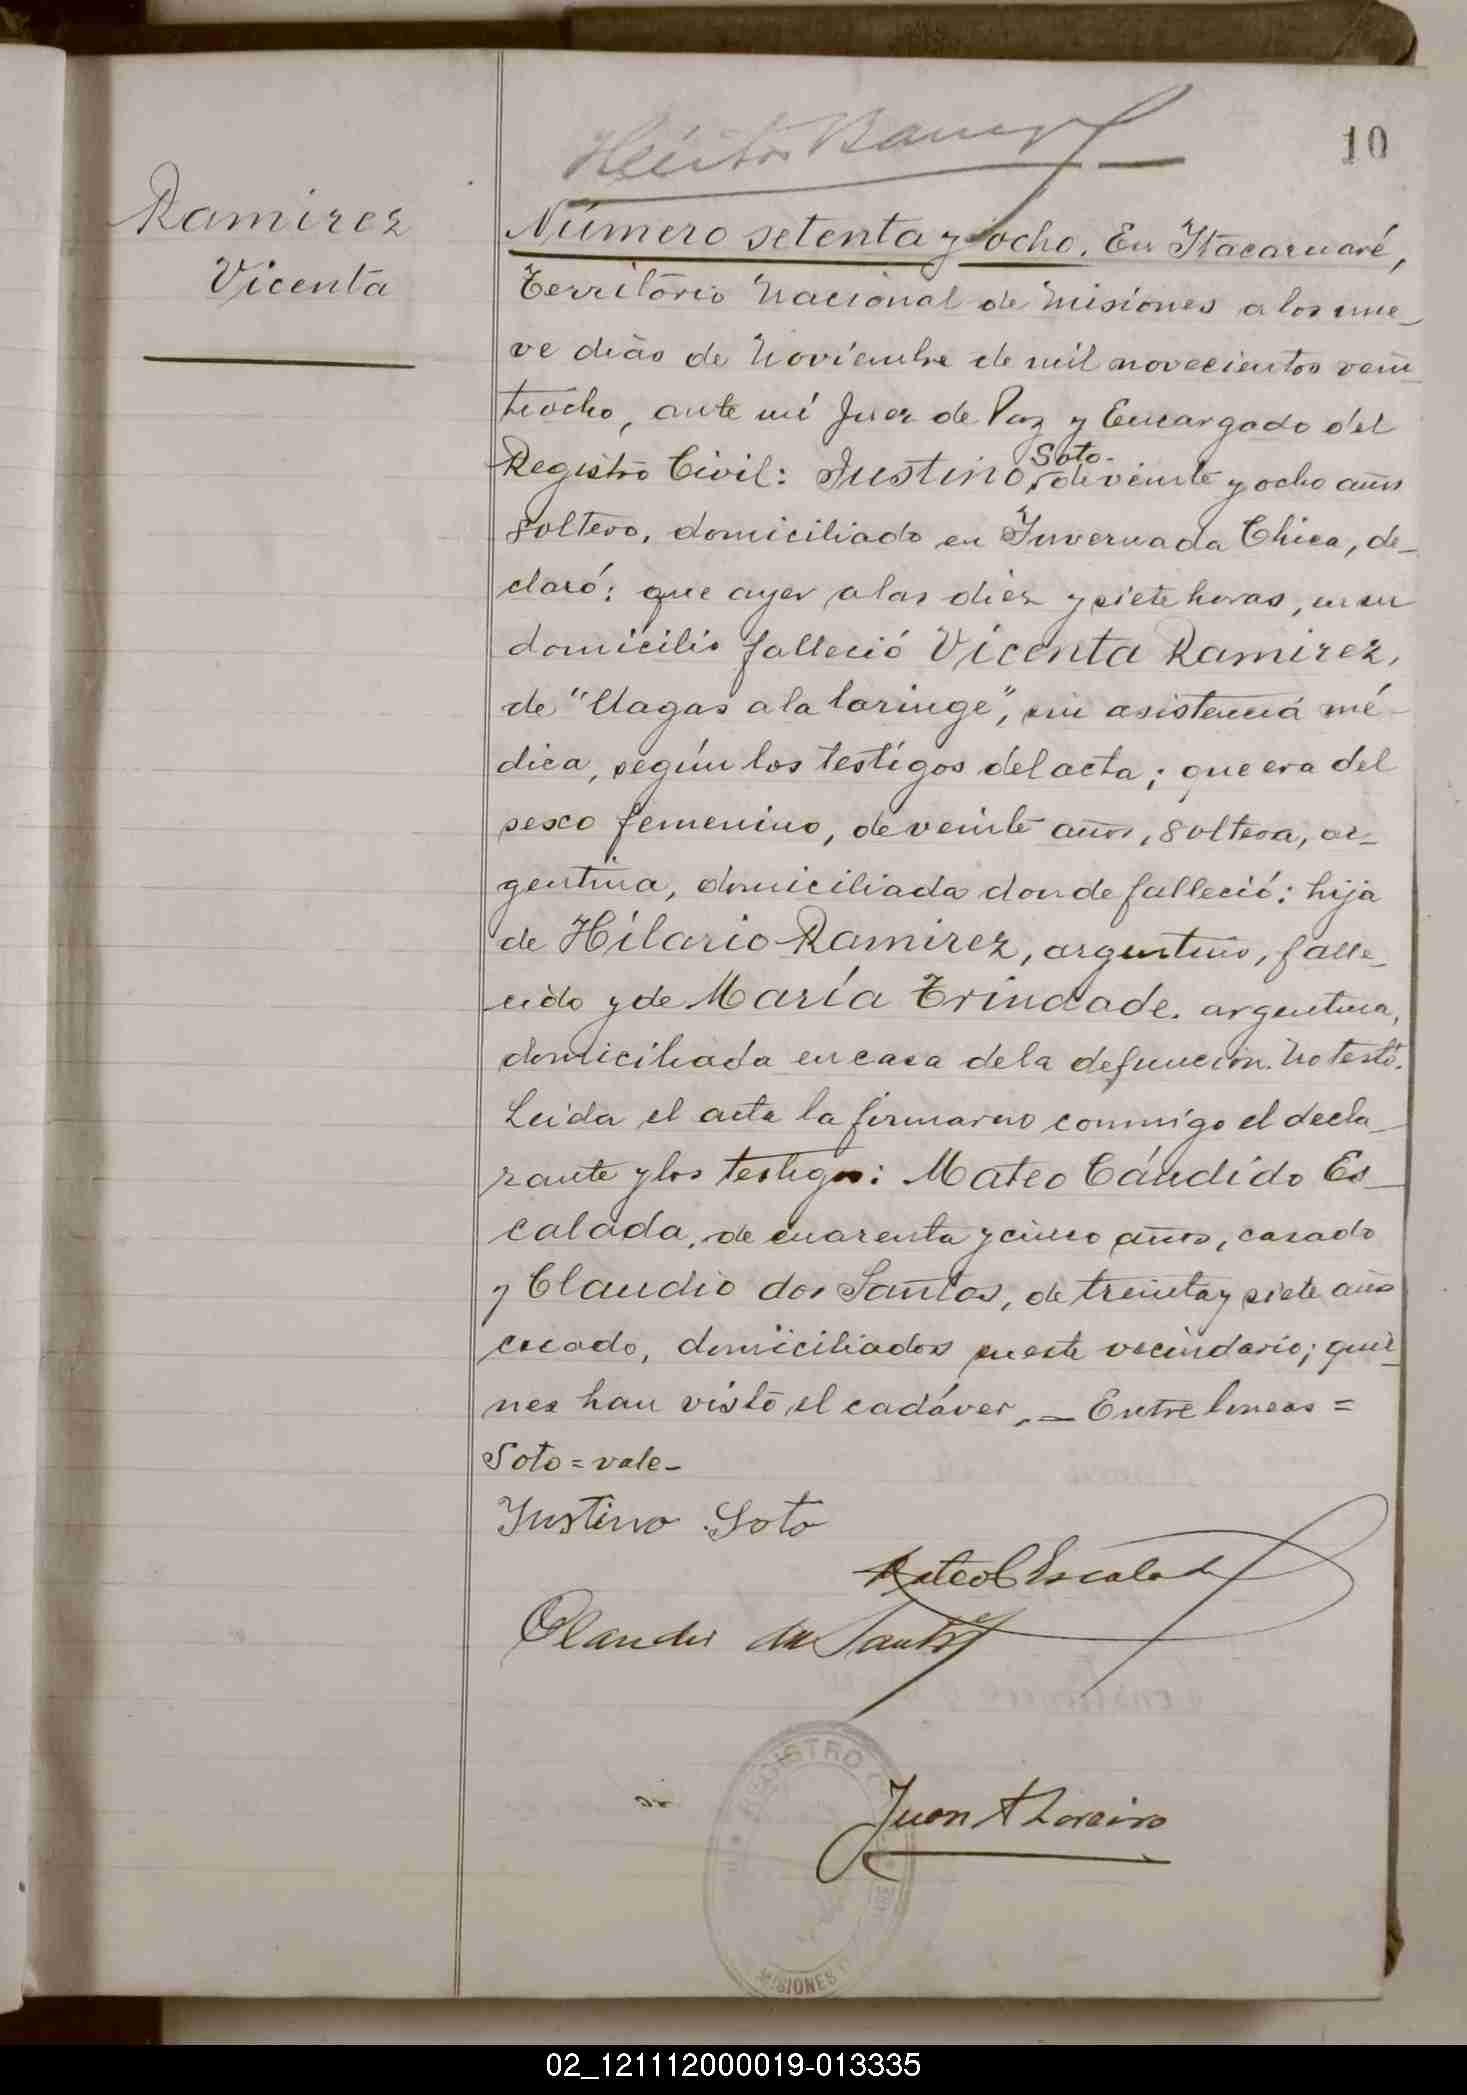 10
Ramirez
Vicenta
Número setenta y ocho. En Itacaruaré,
Territorio Nacional de Misiones a los nue-
ve dias de Noviembre de mil novecientos vein-
tiocho, ante mí Juez de Paz y Encargado del
Registro Civil: Justino Soto, de veinte y ocho años
soltero, domiciliado en Invernada Chica, de-
claró: que ayer a las diez y siete horas, en su
domicilio falleció Vicenta Ramirez,
de "llagas a la laringe", sin asistencia mé-
dica, según los testigos del acta; que era del
sexo femenino, de veinte años, soltera, ar-
gentina, domiciliada donde falleció; hija
de Hilario Ramirez, argentino, falle-
cido y de María Trindade, argentina,
domiciliada en casa de la defunción. No testó.
Leida el acta la firmaron conmigo el decla-
rante y los testigos: Mateo Cándido Es-
calada, de cuarenta y cinco años, casado
y Claudio dos Santos, de treinta y siete años
casado, domiciliados en este vecindario; quie-
nes han visto el cadáver. — Entre lineas =
Soto = vale -
Justino Soto
Mateo C Escalada
Claudio dos Santos
REGISTRO
Juan A Loreiro
MISIONES
02_121112000019-013335